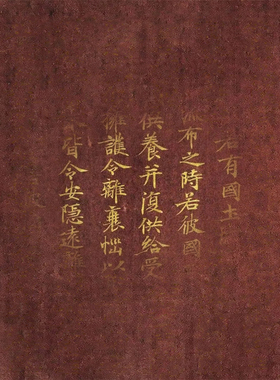 若有國土
布之時若彼國
供養并復供給受
擁護令離衰惱以
皆令安隱遠離